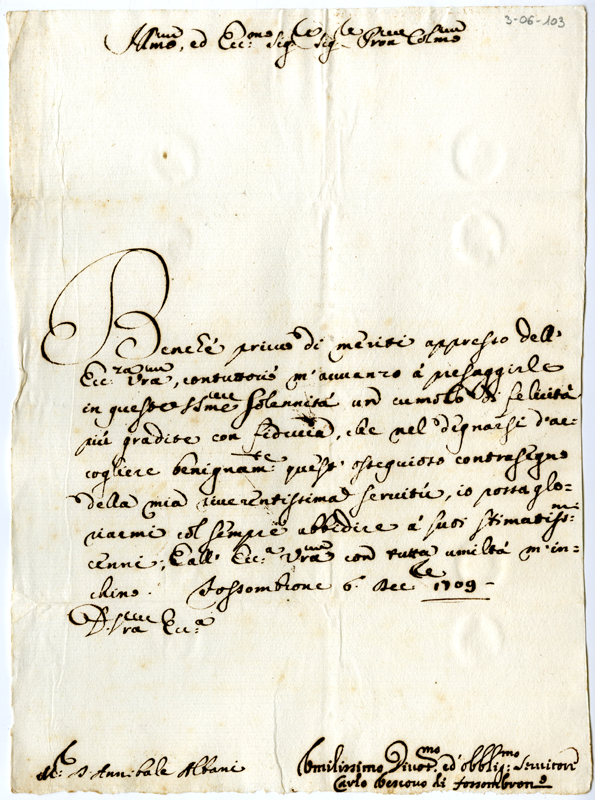 3-06-103
Illmo, ed Ecc:mo Sigre Sigre Pron Colmo
Benché privo di meriti appresso dell'
Ecc:za Vra, contuttociò m'avvanzo á presaggirle
in queste SSme Solennità un cumolo di felicità
più gradite con fiducia, che nel degnarsi d'ac=
cogliere benignamte quest' ossequioso contrasegno
della mia riverentissima servitù, io possa glo=
riarmi col sempre ubbidire á suoi stimatissmi
cenni; E all' Ecc:a Vra con tutta umiltà m'in=
chino. Fossombrone 6. Dec 1709
D. V.ra Ecc:a
D. Annibale Albani
Umilissimo Divot:mo ed obblig:mo Servitore
Carlo Vescovo di Fossombrone